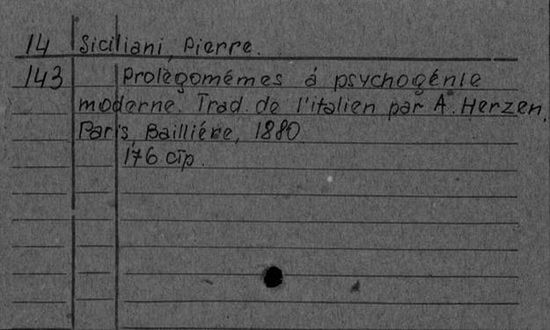 14 Siciliani, Pierre.
143 Prolégomémes á psychogénie
moderne. Trad. de l'italien par A. Herzen.
Paris, Bailliére, 1880.
176 стр.